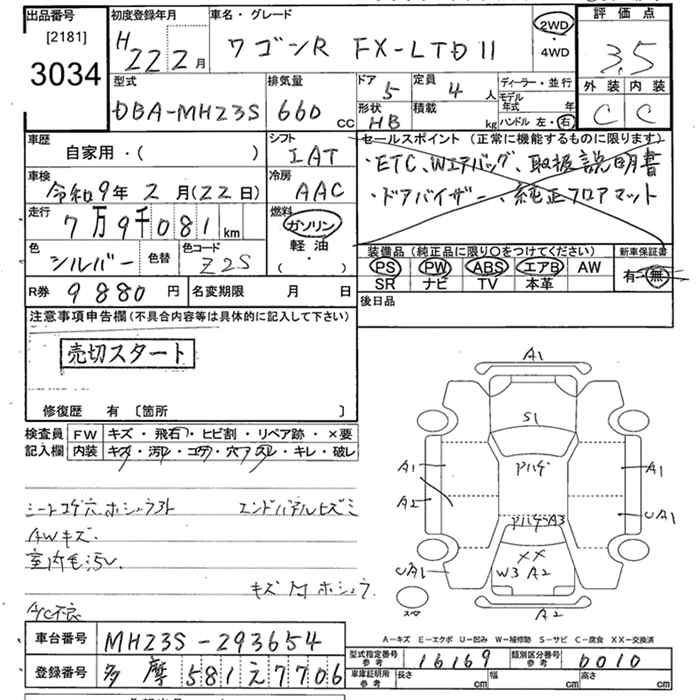 出品番号 [2181] 3034
初度登録年月 H22 2月
車名・グレード ワゴンR FX-LTD II
2WD ・ 4WD
評価点 3.5
外装 内装
C C
型式 DBA-MH23S
排気量 660 CC
ドア 5 定員 4人
形状 HB 積載 kg
ディーラー・並行
モデル年式 年
ハンドル 左・右
車歴 自家用・( )
シフト IAT
車検 令和9年2月(22日)
冷房 AAC
走行 7万9千081km
燃料 ガソリン 軽油 ( ・ )
色 シルバー 色替 色コード Z2S
R券 9880円 名変期限 月 日
セールスポイント (正常に機能するものに限ります)
・ETC、Wエアバッグ、取扱説明書
・ドアバイザー、純正フロアマット
装備品 (純正品に限り○をつけてください)
新車保証書
PS PW ABS エアB AW
SR ナビ TV 本革
有・無
後日品
注意事項申告欄 (不具合内容等は具体的に記入して下さい)
売切スタート
修復歴 有 〔箇所 〕
検査員記入欄
FW キズ・飛石・ヒビ割・リペア跡・×要
内装 キズ・汚レ・コゲ・穴・スレ・キレ・破レ
シートコゲ穴ホシュウ外
エンドパネルヒズミ
AWキズ
室内毛汚レ
キズ 凹 ホシュウ
A/C不良
A1
S1
アハゲ
A1
A2
A1
UA1
アハゲA3
××
W3 A2
UA1
スペ
A2
A-キズ E-エクボ U-凹み W-補修跡 S-サビ C-腐食 XX-交換済
車台番号 MH23S-293654
登録番号 多摩 581 え 7706
型式指定番号 参考 16169
類別区分番号 参考 0010
車庫証明用 参考 長さ cm 幅 cm 高さ cm